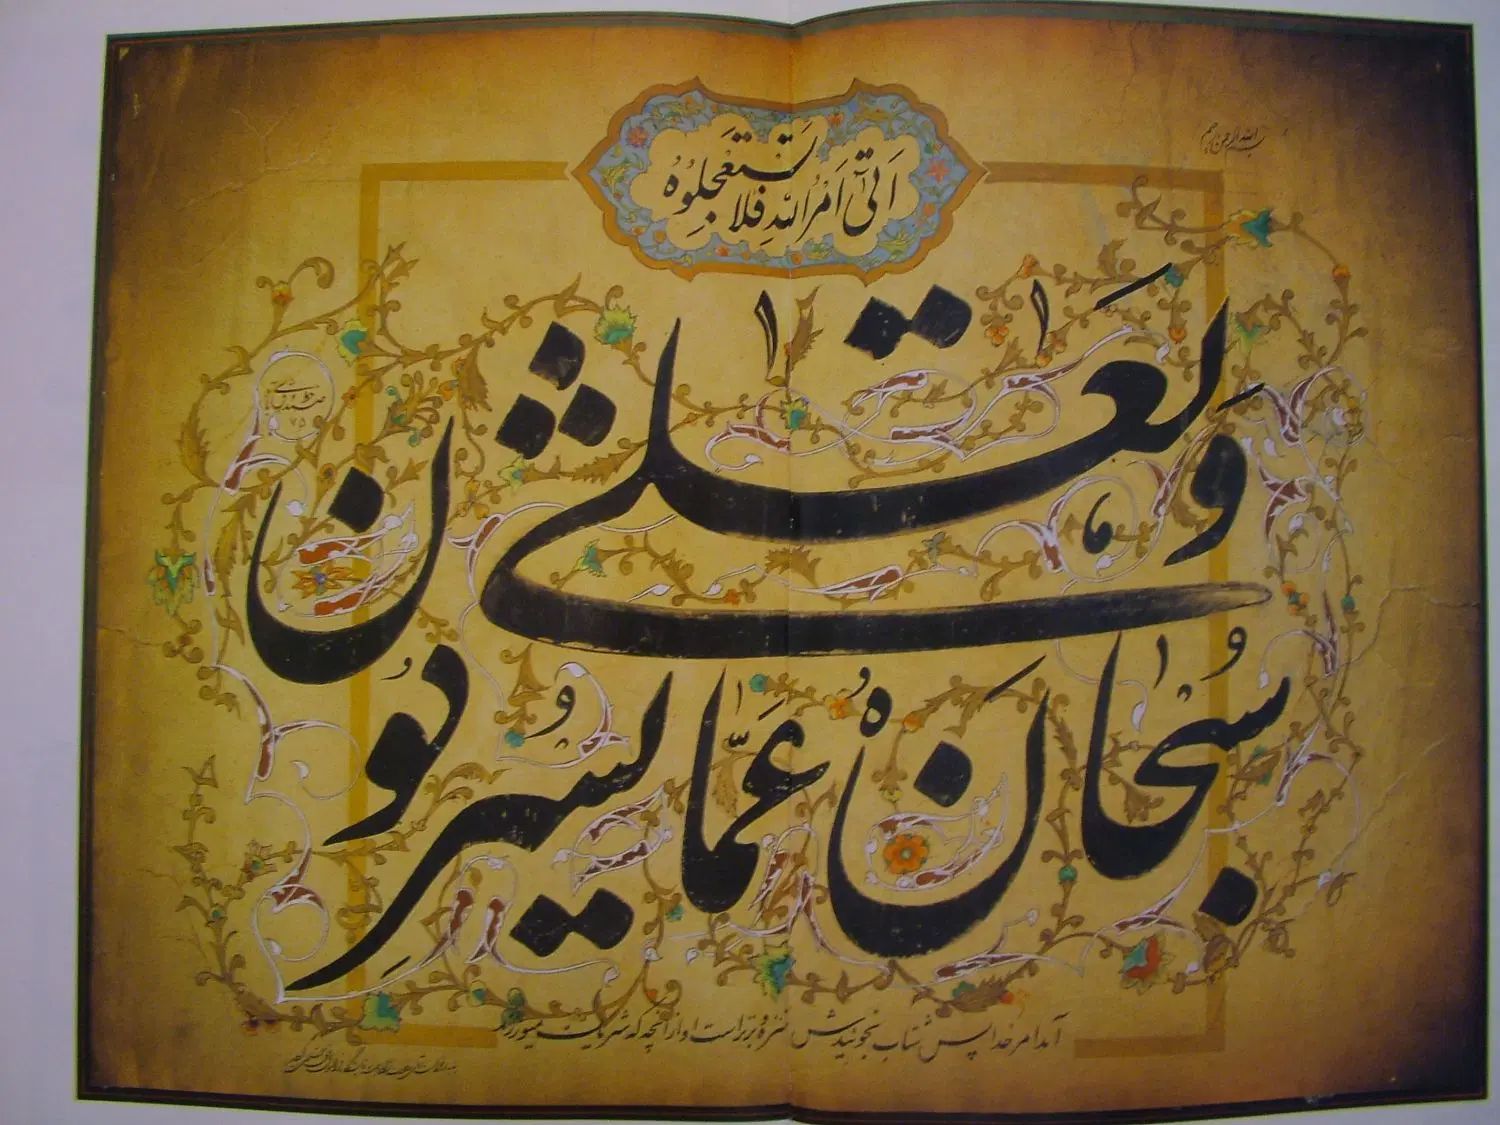 بسم الله الرحمن الرحیم
اَتیٓ اَمْرُ اللهِ فَلا تَستَعْجِلُوهُ
سُبْحانَهُ وَ تَعٰلی
عَمّا یُشرِکُونَ
خط
۷۵
آمد امر خدا پس شتاب نجوئیدش منزه و برتر است او از آنچه که شریک میورزند